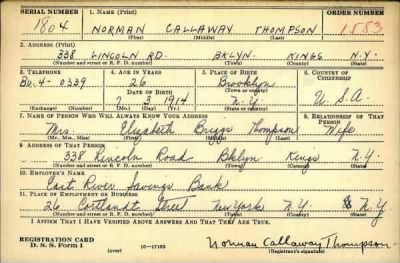 SERIAL NUMBER 1. NAME (Print) ORDER NUMBER
1804 NORMAN CALLAWAY THOMPSON 1583
(First) (Middle) (Last)
2. ADDRESS (Print)
338 LINCOLN RD. BKLYN. KINGS N.Y.
(Number and street or R. F. D. number) (Town) (County) (State)
3. TELEPHONE 4. AGE IN YEARS 5. PLACE OF BIRTH 6. COUNTRY OF CITIZENSHIP
Bu. 4-0339 26 Brooklyn
(Town or county)
DATE OF BIRTH
7 3 1914 N.Y. U.S.A
(Exchange) (Number) (Mo.) (Day) (Yr.) (State or country)
7. NAME OF PERSON WHO WILL ALWAYS KNOW YOUR ADDRESS 8. RELATIONSHIP OF THAT PERSON
Mrs. Elizabeth Briggs Thompson Wife
(Mr., Mrs., Miss) (First) (Middle) (Last)
9. ADDRESS OF THAT PERSON
338 Lincoln Road Bklyn Kings N.Y.
(Number and street or R. F. D. number) (Town) (County) (State)
10. EMPLOYER'S NAME
East River Savings Bank
11. PLACE OF EMPLOYMENT OR BUSINESS
26 Cortlandt Street New York N.Y. N.Y
(Number and street or R. F. D. number) (Town) (County) (State)
I AFFIRM THAT I HAVE VERIFIED ABOVE ANSWERS AND THAT THEY ARE TRUE.
REGISTRATION CARD
D. S. S. Form 1 (over) 16—17105 Norman Callaway Thompson
(Registrant's signature)